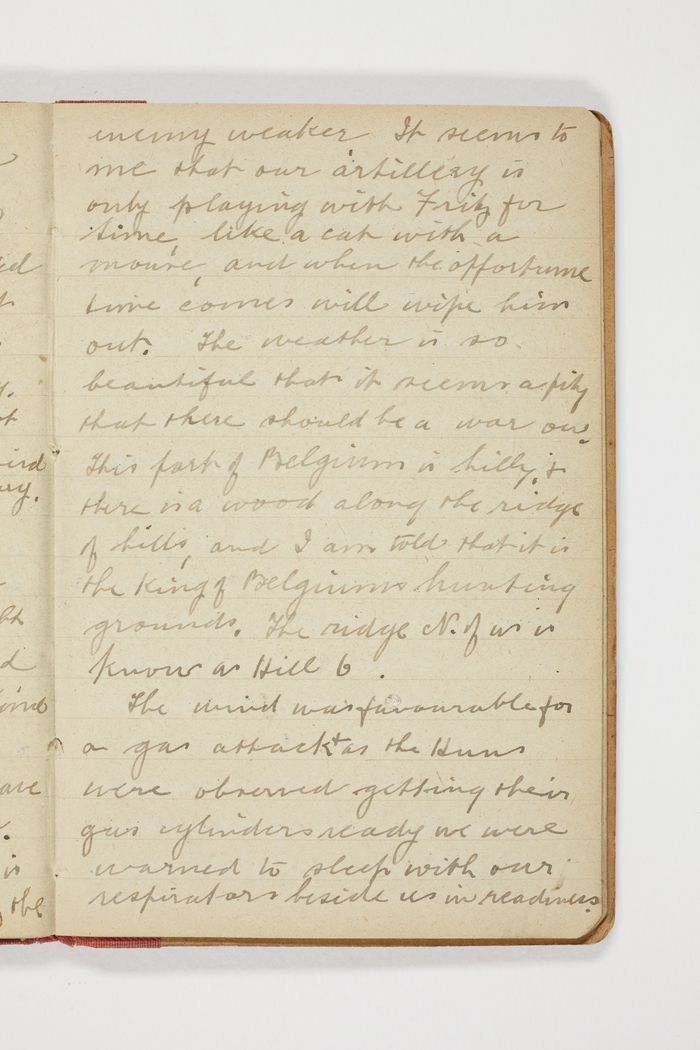 enemy weaker It seems to
me that our artillery is
only playing with Fritz for
time, like a cat with a
mouse, and when the offortune
time comes will wipe him
out. The weather is so
beautiful that it seems a pity
that there should be a war on.
This part of Belgium is hilly, &
there is a wood along the ridge
of hills, and I am told that it is
the King of Belgiums hunting
grounds. The ridge N. of us is
know as Hill 6 .
The wind was favourable for
a gas attack & as the Huns
were observed getting their
gas cylinders ready we were
warned to sleep with our
respirators beside us in readiness.
ed
y.
ird
ary.
d
ave
is
the